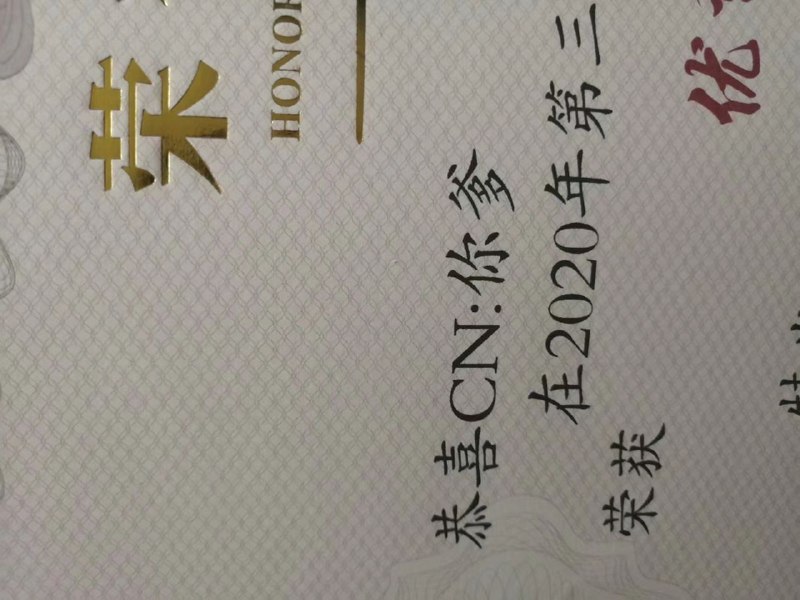 荣
HONOR
恭喜CN:你爹
在2020年第三
荣获
优
特